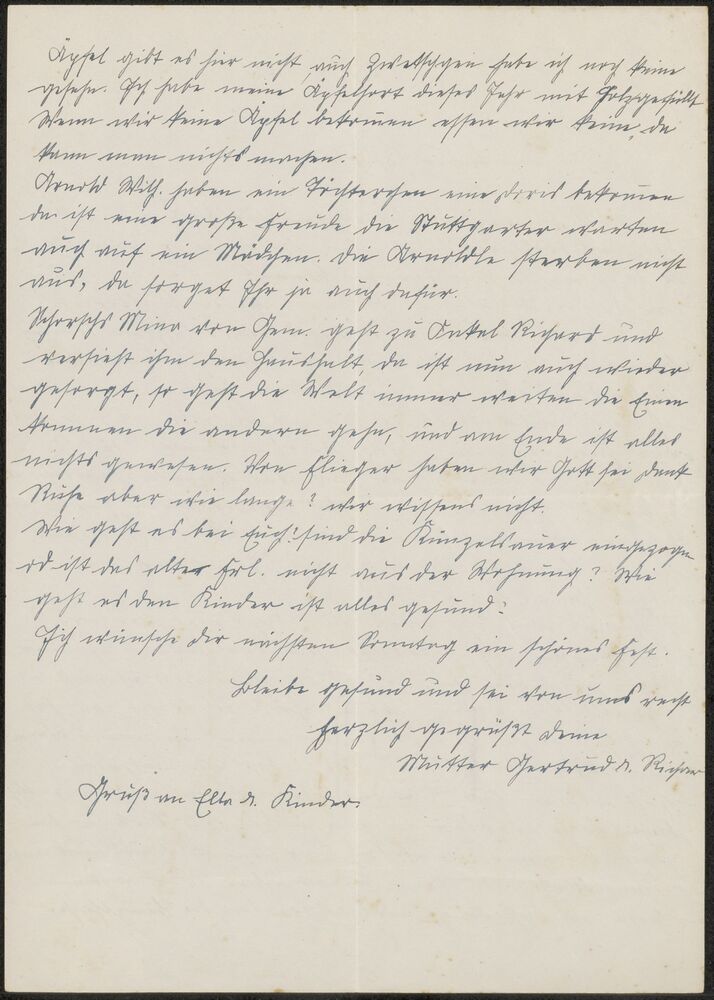 Äpfel gibt es hier nicht, auch Zwetschgen habe ich noch keine
gesehn. Ich habe meine Äpfelhort dieses Jahr mit Holz gefüllt
Wenn wir keine Äpfel bekommen essen wir keine, da
kann man nichts machen.
Arnold Wilh. haben ein Töchterchen eine Doris bekommen
da ist eine große Freude die Stuttgarter warten
auch auf ein Mädchen. Die Arnoldle sterben nicht
aus, da sorget Ihr ja auch dafür.
Schorschs Mina von Gem. geht zu Onkel Richard und
versieht ihm den Haushalt, da ist nun auch wieder
gesorgt, so geht die Welt immer weiter die Einen
kommen die andern gehn, und am Ende ist alles
nichts gewesen. Von Flieger haben wir Gott sei Dank
Ruhe aber wie lange? wir wissens nicht.
Wie geht es bei Euch? sind die Künzelsauer eingezogen
od ist das alter Frl. nicht aus der Wohnung? Wie
geht es den Kinder ist alles gesund?
Ich wünsche Dir nächsten Sonntag ein schönes Fest.
Bleibe gesund und sei von uns recht
herzlich gegrüßt Deine
Mutter Gertrud u. Richar
Gruß an Ella u. Kinder.